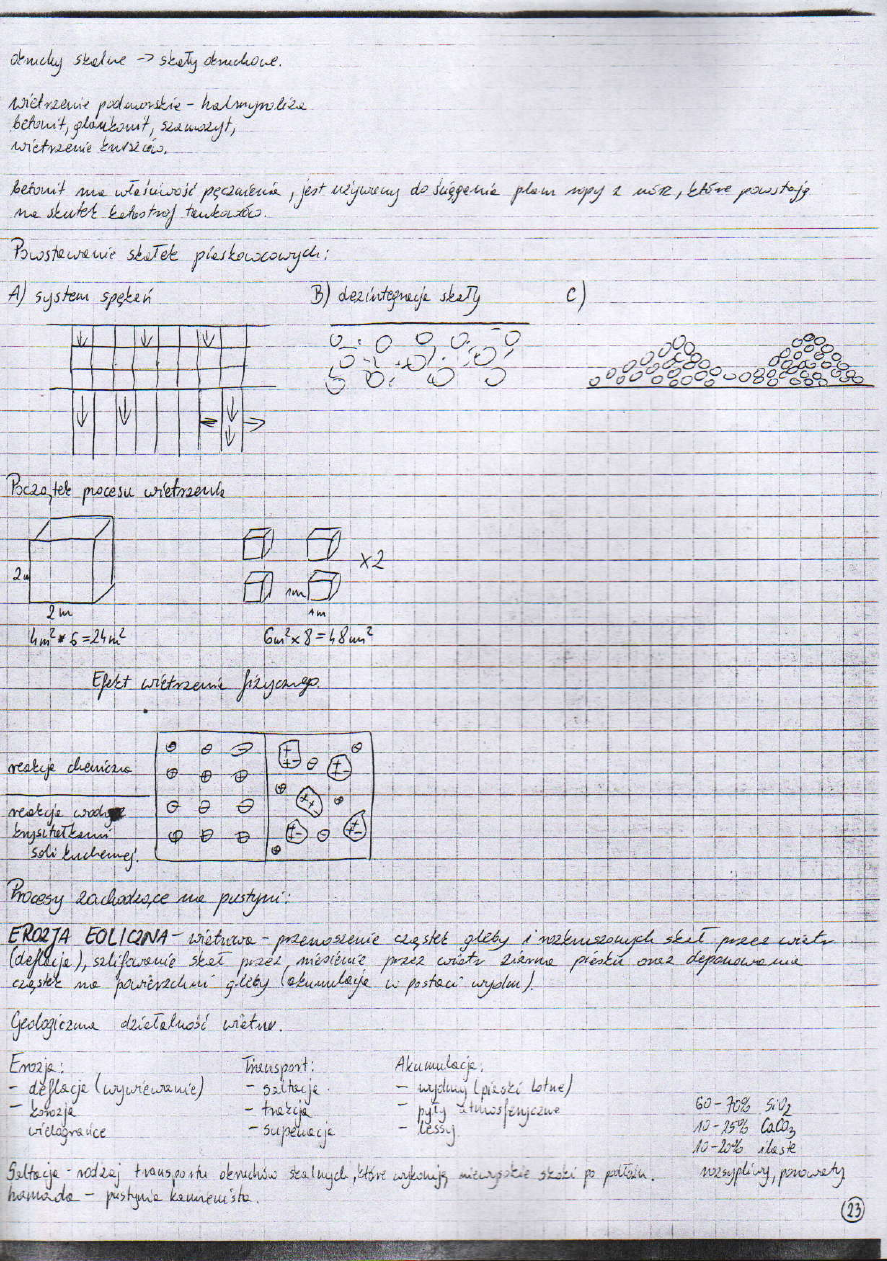 okruchy skalne -> skały okruchowe.
wietrzenie podmorskie - halmyroliza
betonit, glaukonit, szamozyt,
wietrzenie kruszców.
betonit ma właściwość pęcznienia, jest używany do ściągania plam ropy z mórz, które powstają
na skutek katastrof tankowców.
Powstawanie skałek piaskowcowych:
A) system spękań B) dezintegracja skały C)
Początek procesu wietrzenia
x2
2m 1m
2m 1m
4m² * 6 = 24m² 6m² x 8 = 48m²
Efekt wietrzenia fizycznego.
reakcja chemiczna
reakcja wody z
kryształkami
soli kuchennej.
Procesy zachodzące na pustyni:
EROZJA EOLICZNA - wietrzna - przenoszenie cząstek gleby i rozkruszonych skał przez wiatr
(deflacja), szlifowanie skał przez niesienie przez wiatr ziarna piasku oraz deponowanie
cząstek na powierzchni gleby (akumulacja w postaci wydm).
Geologiczna działalność wiatru.
Erozja: Transport: Akumulacja:
- deflacja (wywiewanie) - saltacja - wydmy (piaski lotne)
- korozja - trakcja - pyły atmosferyczne
wielograńce - supensacja - lessy
60-70% SiO₂
10-25% CaCO₃
10-20% ilaste
rozsypliwy, porowaty
Saltacja - rodzaj transportu okruchów skalnych, które wykonują niewysokie skoki po podłożu.
hamada - pustynia kamienista.
23